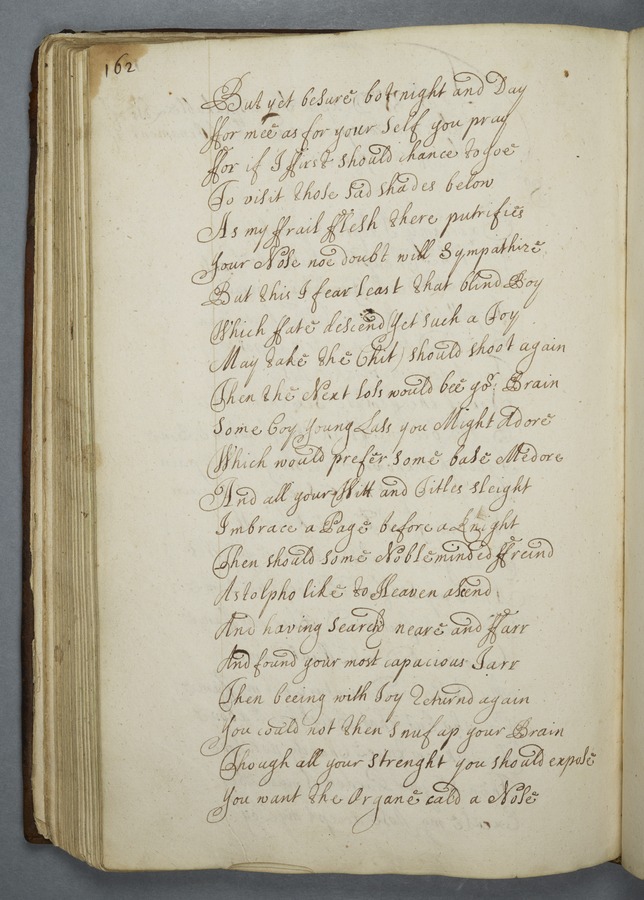 162
But yet besure both night and Day
ffor mee as for your self you pray
ffor if I ffirst should chance to goe
To visit those sad shades below
As my ffrail fflesh there putrifies
Your Nose noe doubt will Sympathize
But this I fear least that blind Boy
Which ffate descend yet such a Joy
May take the Chit) should shoot again
Then the Next loss would bee yor: Brain
Some Coy young Lass you Might Adore
Which would prefer some base Medore
And all your Witt and Titles sleight
Imbrace a Page before a Knight
Then should some Nobleminded ffreind
Astolpho like to Heaven asend
And having Searchd neare and ffarr
And found your most capacious Jarr
Then beeing with Joy returnd again
You could not then snuf up your Brain
Though all your strenght you should expose
You want the Organe calld a Nose